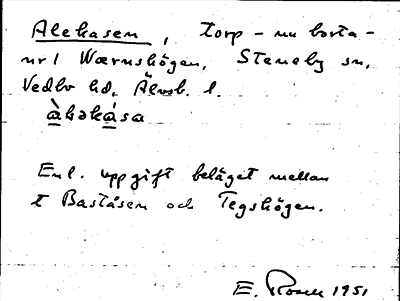 Alekasen, torp - nu borta -
nr 1 Wærnshögen, Steneby sn,
Vedbo hd, Älvsb. l.
àləkása
Enl. uppgift beläget mellan
t Baståsen och Tegshögen.
E. Rosen 1951